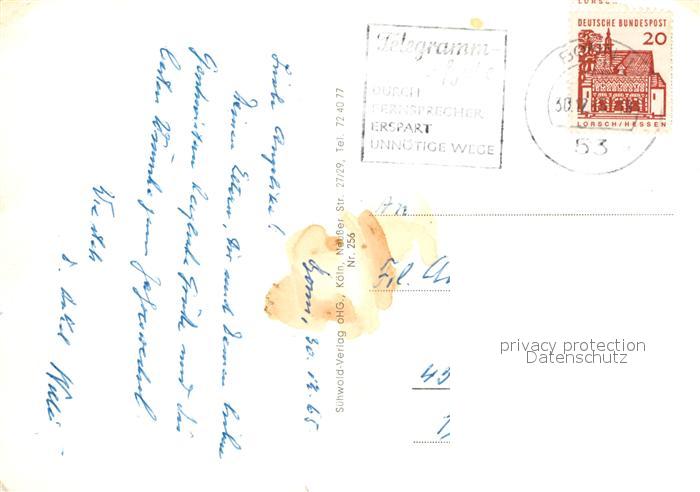 LORSCH
DEUTSCHE BUNDESPOST
20
LORSCH/HESSEN
BONN
30.12
53
Telegramm-
DURCH
FERNSPRECHER
ERSPART
UNNÖTIGE WEGE
Bonn, 30.12.65
Liebe Angelika!
Deinen Eltern, Dir und Deinen lieben
Geschwistern herzliche Grüße und die
besten Wünsche zum Jahreswechsel
Wie stets
d. Onkel Willi
Sühwold-Verlag oHG., Köln, Neußer Str. 27/29, Tel. 72 40 77
Nr. 256
An
Frl.
privacy protection
Datenschutz